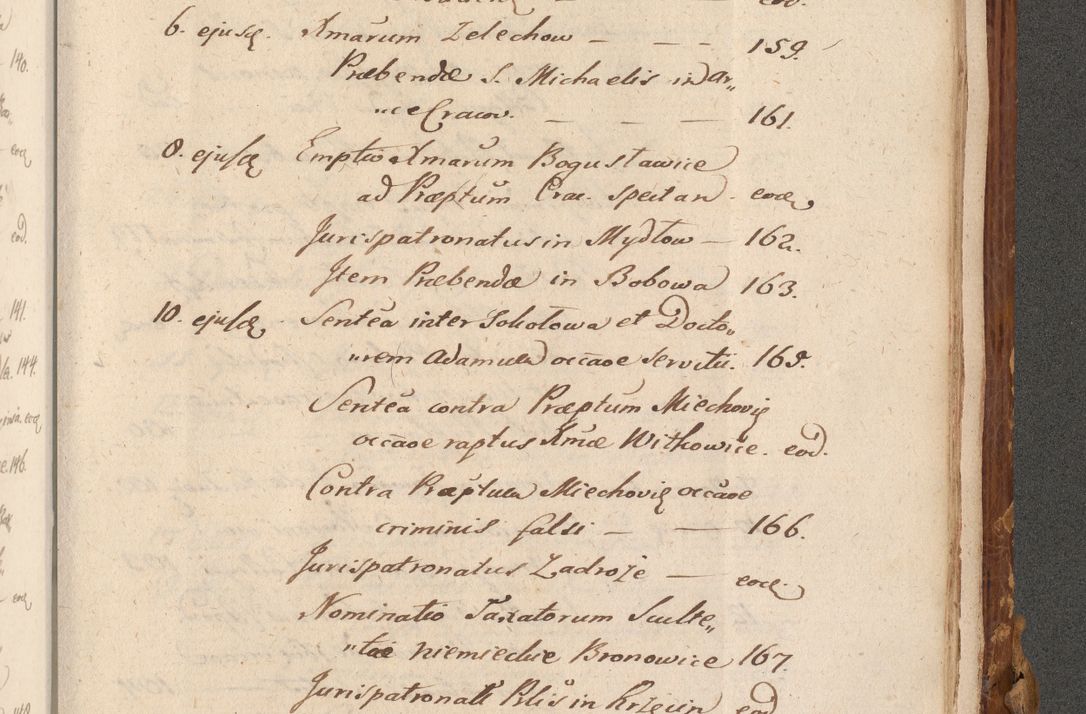 eod.
6. ejusq. Xmarum Zelechow — — — 159.
Præbendæ S. Michaelis in Ar„
„ce Cracov. — — — 161.
8. ejusq Emptio Xmarum Bogustawice
ad Præptum Crac. spectan. eoq,
Jurispatronatus in Mydłow — 162.
Item Præbendæ in Bobowa 163.
10. ejusq Sentēa inter Sokołowa et Docto„
„rem Adamum occāoe servitii. 165.
Sentēa contra Præptum Miechovię
occāoe raptus Xmæ Witkowice. eod.
Contra Præptum Miechovię occāoe
criminis falsi — — 166.
Jurispatronatus Zadroże — eoq.
Nominatio Taxatorum Sculte„
„tiæ Niemieckie Bronowice 167.
Jurispatronatt Plis in Krzęcin eod
140.
eoq
eod.
141.
144.
eoq
146.
eoq